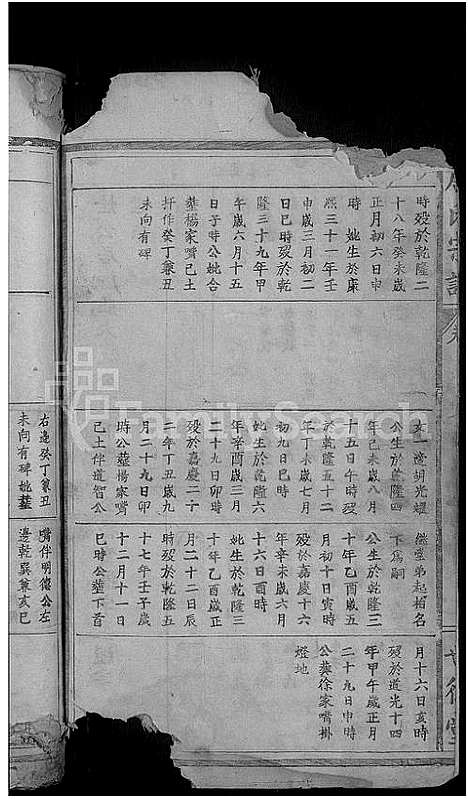 時歿於乾隆二
十八年癸未歲
正月初六日申
時 妣生於康
熙三十一年壬
申歲三月初二
日巳時歿於乾
隆三十九年甲
午歲六月十五
日子時公妣合
塟楊家嘴己土
扦作癸丁兼丑
未向有碑
女一適胡光耀
公生於乾隆四
年己未歲八月
十五日午時歿
於乾隆五十二
年丁未歲七月
初九日巳時
妣生於乾隆六
年辛酉歲三月
二十九日卯時
歿於嘉慶二十
二年丁丑歲九
月二十九日卯
時公塟楊家嘴
己土伴道智公
繼堂弟起栢名
下爲嗣
公生於乾隆三
十年乙酉歲五
月初十日寅時
歿於嘉慶十六
年辛未歲六月
十六日酉時
妣生於乾隆三
十年乙酉歲正
月二十二日辰
時歿於乾隆五
十七年壬子歲
十二月十一日
巳時公塟下首
月十六日亥時
歿於道光十四
年甲午歲正月
二十九日申時
公葬徐家嘴掛
燈地
右邊癸丁兼丑
未向有碑妣塟
嘴伴明德公左
邊乾巽兼亥巳
FamilySearch